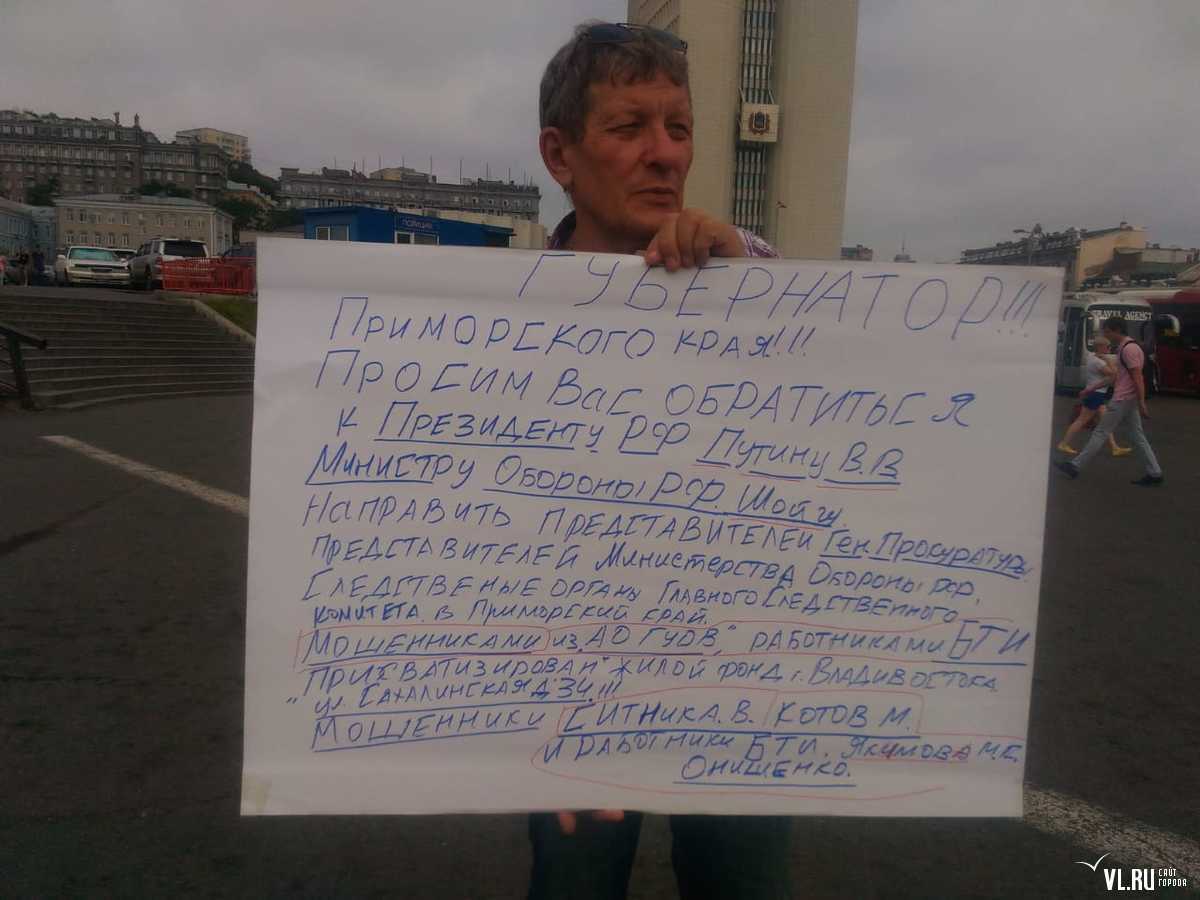 ПОЛИЦИЯ
TRAVEL AGENCY
ГУБЕРНАТОР!!!
ПРИМОРСКОГО КРАЯ!!!
ПРОСИМ ВАС ОБРАТИТЬСЯ
К ПРЕЗИДЕНТУ РФ ПУТИНУ В.В
МИНИСТРУ ОБОРОНЫ РФ. ШОЙГУ.
НАПРАВИТЬ ПРЕДСТАВИТЕЛЕЙ ГЕН. ПРОКУРАТУРЫ
ПРЕДСТАВИТЕЛЕЙ МИНИСТЕРСТВА ОБОРОНЫ РФ,
СЛЕДСТВЕНЫЕ ОРГАНЫ ГЛАВНОГО СЛЕДСТВЕННОГО
КОМИТЕТА. В ПРИМОРСКИЙ КРАЙ.
МОШЕННИКАМИ ИЗ "АО ГУОВ", РАБОТНИКАМИ БТИ
ПРИХВАТИЗИРОВАН" ЖИЛОЙ ФОНД г. ВЛАДИВОСТОКА
" ул. САХАЛИНСКАЯ Д34!!!
МОШЕННИКИ СИТНИК А.В. КОТОВ М.
И РАБОТНИКИ БТИ. ЯКИМОВА
ОНИЩЕНКО.
VL.RU САЙТ ГОРОДА